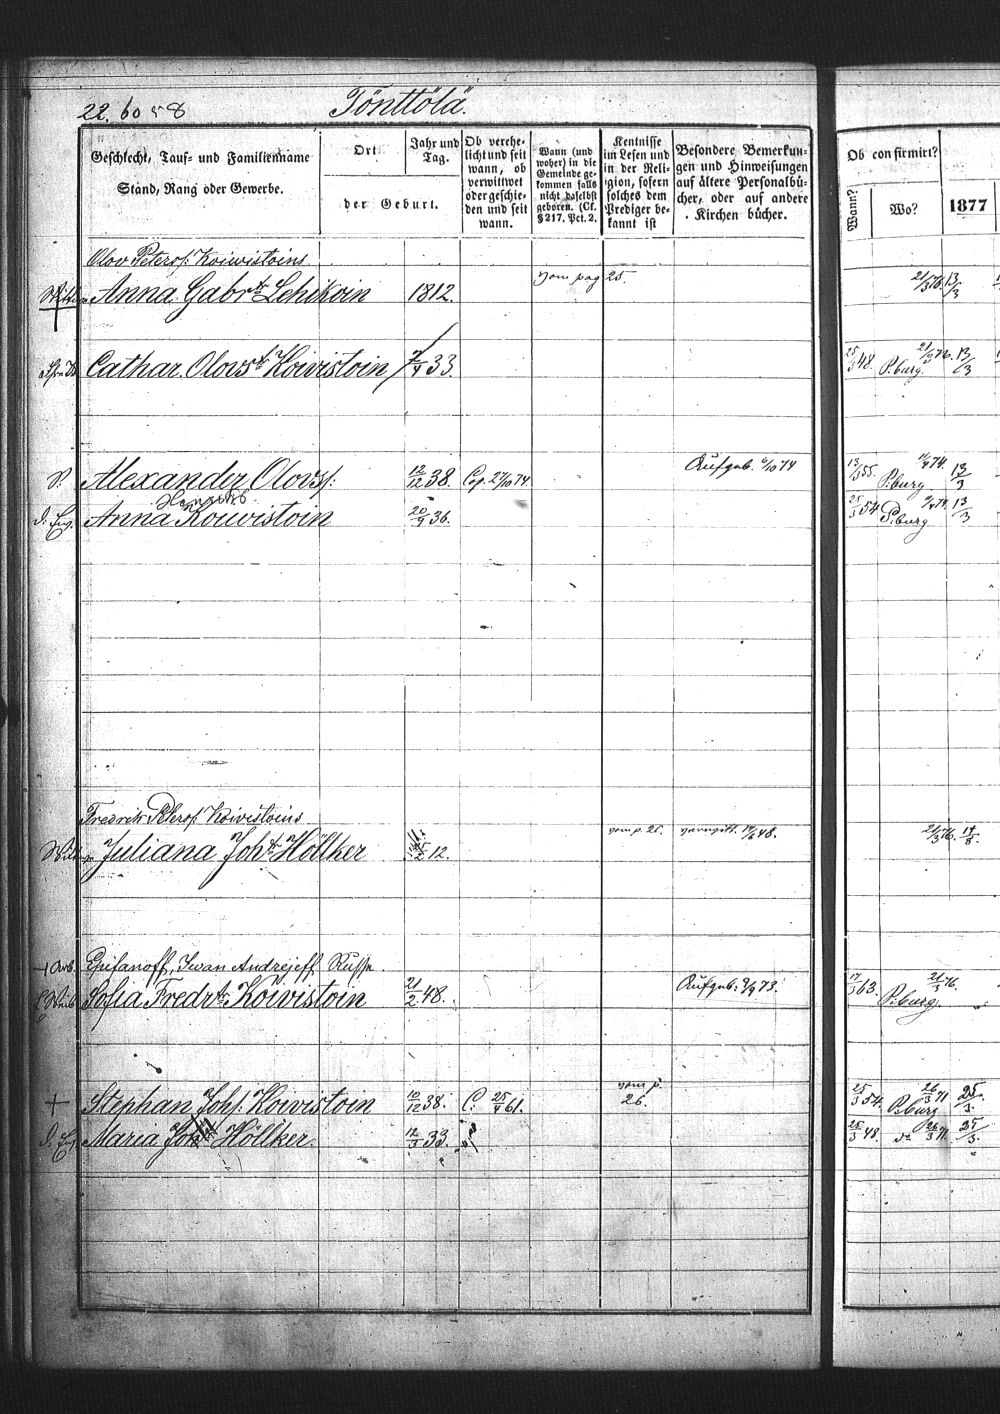 22. 60 58 Tönttölä.
Geschlecht, Tauf- und Familienname
Stand, Rang oder Gewerbe.
Ort
Jahr und Tag.
der Geburt.
Ob verehe-
licht und seit
wann, ob
verwittwet
oder geschie-
den und seit
wann.
Wann (und
woher) in die
Gemeinde ge-
kommen falls
nicht daselbst
geboren. (Cf.
§ 217. Pct. 2.
Kentnisse
im Lesen und
in der Reli-
gion, sofern
solches dem
Prediger be-
kannt ist
Besondere Bemerkun-
gen und Hinweisungen
auf ältere Personalbü-
cher, oder auf andere
Kirchen bücher.
Ob confirmirt?
Wann?
Wo?
1877
Olov Petersf. Koiwistoins
Anna Gabr. Lehikoin 1812. vom pag 25. 21/3 76. 13/3
Cathar. Olovs Koivistoin 7/4 33. 25/3 48. P.burg. 21/3 76. 13/3
S. Alexander Olovsf: 12/12 38. Cop. 27/10 74 Aufgeb. 6/10 74 13/3 55 P.burg 74. 13/3
Anna Koiwistoin 20/9 36. 25/3 54 P.burg 74. 13/3
Fredrik Petersf Koivistoins
Juliana Joh. Höllker 12. vom p. 25. 48. 21/3 76. 14/8.
+ Arb. Epifanoff, Iwan Andrejeff Russe.
Sofia Fredr. Koivistoin 21/2 48. Aufgeb. 73. 17/3 63. P.burg. 21/3 76.
+ Stephan Johs. Koivistoin 10/12 38. C. 25/4 61. vom p. 26. 25/3 54. P.burg 26/3 71 25/3.
Maria Joh. Höllker. 12/3 33. 25/3 48. do 26/3 71. 25/3.